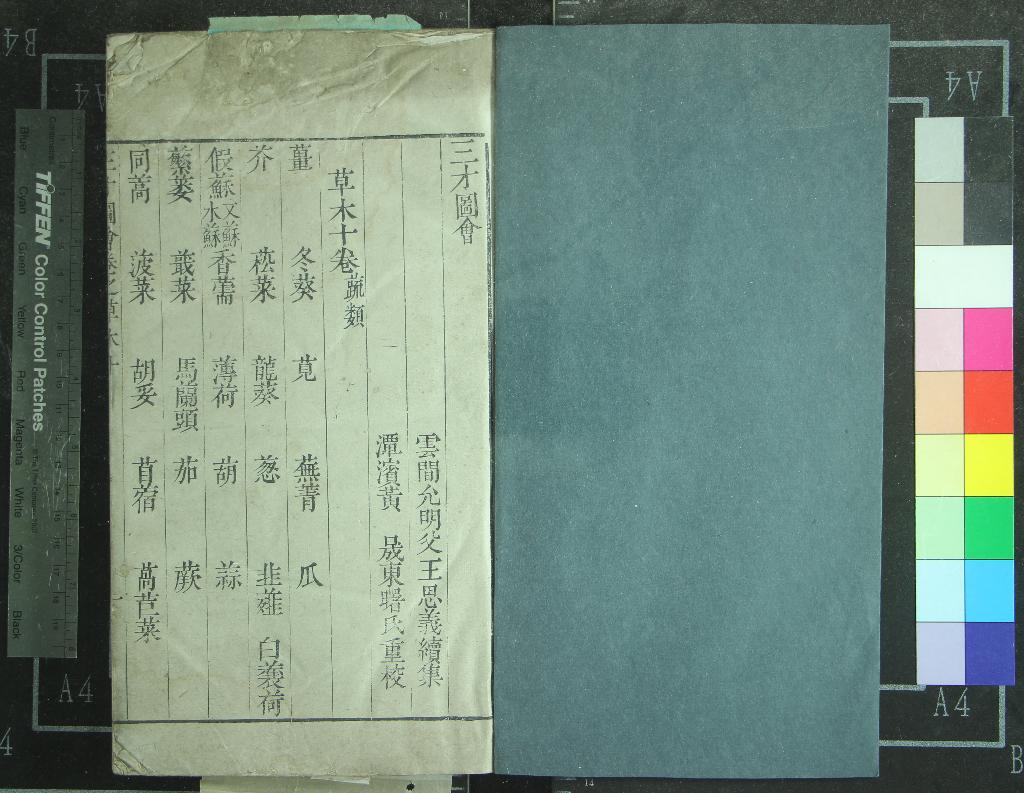 三才圖會
雲間允明父王思義續集
潭濱黃 晟東曙氏重校
草木十卷 蔬類
薑 冬葵 莧 蕪菁 瓜
芥 菘菜 龍葵 葱 韭薤 白蘘荷
假蘇 又蘇 水蘇 香薷 薄荷 葫 蒜
蘩蔞 蕺菜 馬蘭頭 茄 蕨
同蒿 菠菜 胡荽 苜宿 萵苣菜
TIFFEN Color Control Patches
Blue Cyan Green Yellow Red Magenta White 3/Color Black
B4
A4
A4
A4
A4